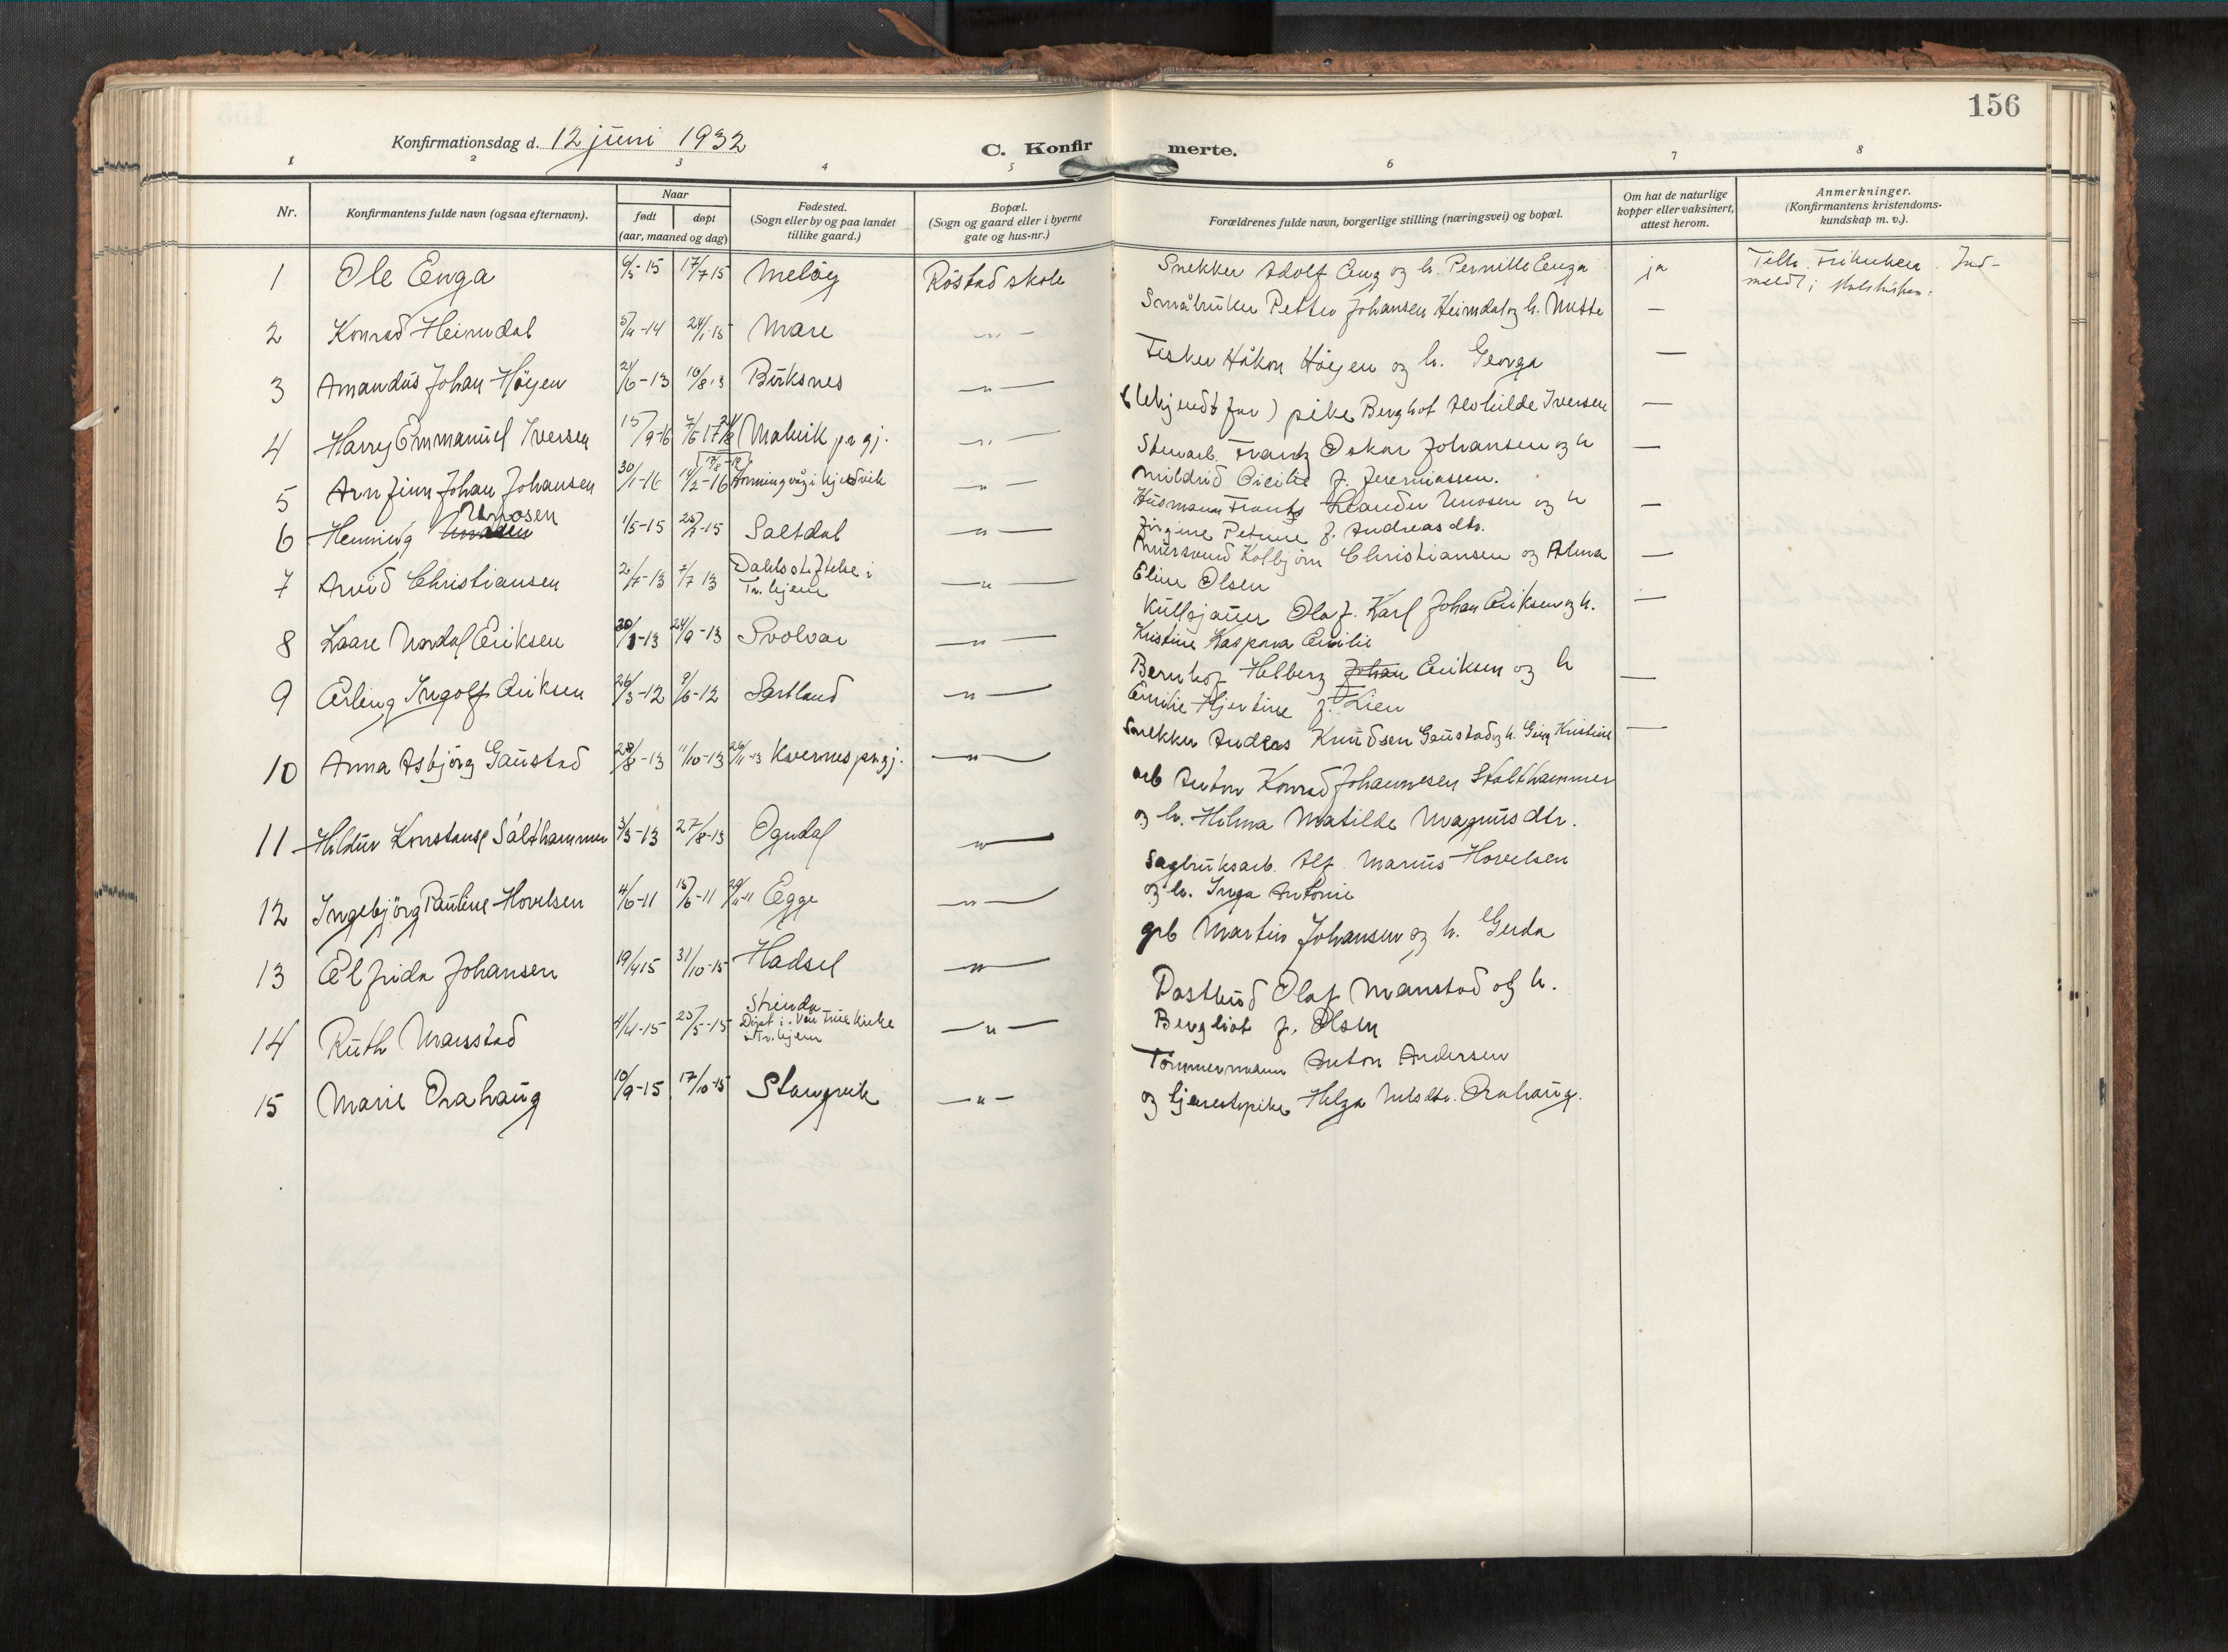 156
Konfirmationsdag d. 12 juni 1932
C. Konfirmerte.
1 2 3 4 5 6 7 8
Nr.
Konfirmantens fulde navn (ogsaa efternavn).
Naar
født døpt
(aar, maaned og dag)
Fødested.
(Sogn eller by og paa landet
tillike gaard.)
Bopæl.
(Sogn og gaard eller i byerne
gate og hus-nr.)
Forældrenes fulde navn, borgerlige stilling (næringsvei) og bopæl.
Om hat de naturlige
kopper eller vaksinert,
attest herom.
Anmerkninger.
(Konfirmantens kristendoms-
kundskap m. v.).
1 Ole Enga 6/5-15 17/7 15 Meløy Röstad skole Snekker Adolf Eng og h. Pernille Enga ja
Tilh. Frikirken. Ind-
meldt i statskirken.
2 Konrad Heimdal 24/1-15 Mare -„- Småbruker Petter Johansen Heimdal og h. Mette —
3 Amandus Johan Høyen 21/6-13 16/8 13 Birksnes -„- Fisker Håkon Høyen og h. Georga —
4 Harry Emmanuel Iversen 15/9-16 Malvik pr gj. -„- (Ukjendt far) pike Berghot Alvhilde Iversen —
5 Arn Finn Johan Johansen 30/1-16 14/2-16 Honningvåg i Kjelvik -„- Stenarb. Frantz Oskar Johansen og h —
Mildrid Cicilie f. Jeremiassen.
6 Henning Unosen 1/5-15 25/7-15 Saltdal -„- Husmann Frants Leander Unosen og h —
Jirgine Petrine f. Andreasdtr.
7 Arvid Christiansen 2/7-13 7/7 13 Dahlsstiftelse i
Tr.hjem -„- Murersvend Kolbjörn Christiansen og Alma —
Eline Olsen
8 Kaare Nordal Eriksen 24/9-13 Svolvær -„- Kullsjauer Olaf Karl Johan Eriksen og h. —
Kristine Kasparа Emilie
9 Erling Ingolf Eriksen 26/3-12 9/6-12 Sortland -„- Bernhof Helberg Johan Eriksen og h —
Emilie Hjertine f. Lien
10 Anna Asbjörg Gaustad 28/8-13 11/10-13 26/11-13 Kvernes pr gj. -„- Snekker Andreas Knudsen Gaustad og h. Kristine —
11 Hildur Konstanse Salthammer 3/3-13 27/8-13 Ogndal -„- arb Anton Konrad Johannesen Stalthammer
og h. Hilma Matilde Magnusdtr.
12 Ingebjörg Pauline Hovelsen 4/6-11 15/6-11 Egge -„- Sagbruksarb. Alf Marius Hovelsen
og h. Inga Antonie
13 Elfrida Johansen 19/4 15 31/10-15 Hadsel -„- grb Martin Johansen og h. Gerda
14 Ruth Manstad 4/4-15 25/5-15 Strinda
Döpt i Vår Frue kirke
i Tr.hjem -„- Postbud Olaf Manstad og h.
Bergliot f. Olsen
15 Marie Oxahaug 10/9-15 17/10-15 Stangvik -„- Tömmermann Anton Andersen
og tjenestepike Helga Nilsdtr. Oxahaug.